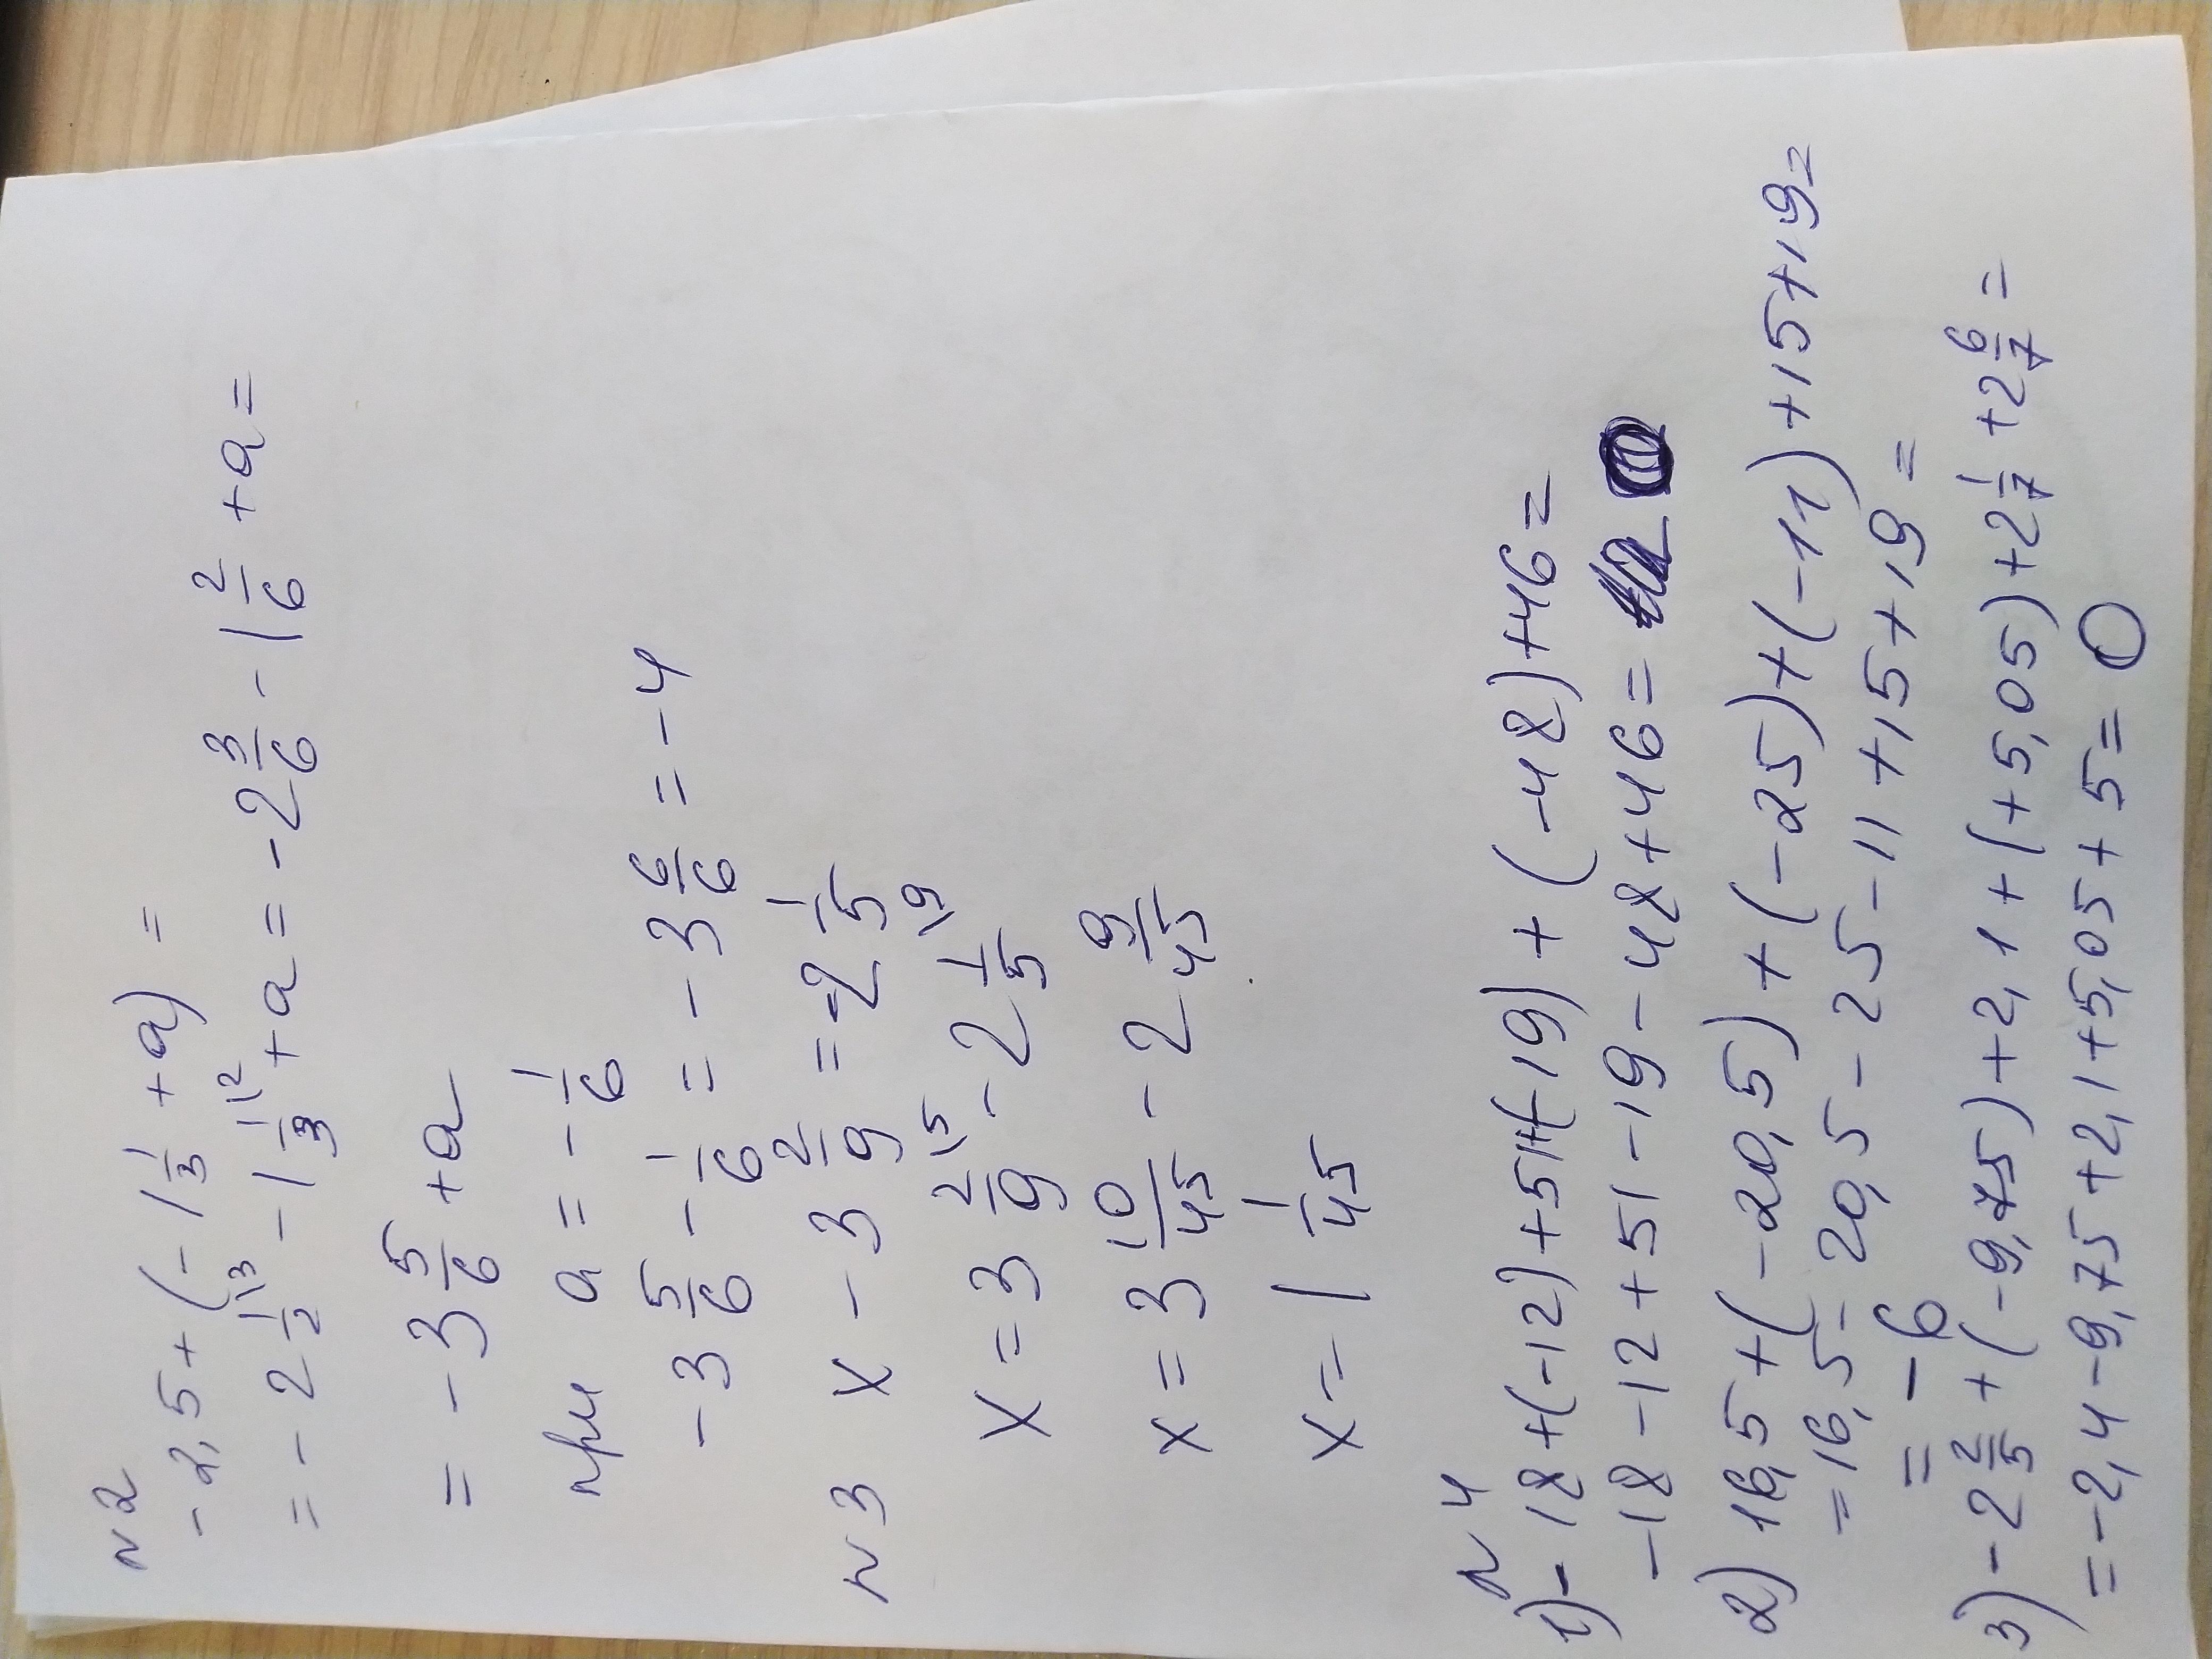 №2
-2,5+(-1 1/3 +a) =
= -2 1/2 \3 -1 1/3 \2 +a = -2 3/6 - 1 2/6 +a=
= -3 5/6 +a
при a = -1/6
-3 5/6 - 1/6 = -3 6/6 = -4
№3 x - 3 2/9 = -2 1/5
x = 3 2/9 \5 - 2 1/5 \9
x = 3 10/45 - 2 9/45
x = 1 1/45
№4
1) -18+(-12)+51+(-19)+(-48)+46=
-18-12+51-19-48+46=
2) 16,5+(-20,5)+(-25)+(-11)+15+19=
=16,5-20,5-25-11+15+19=
= -6
3) -2 2/5 +(-9,75)+2,1+(+5,05)+2 1/7 +2 6/7 =
=-2,4-9,75+2,1+5,05+5=0